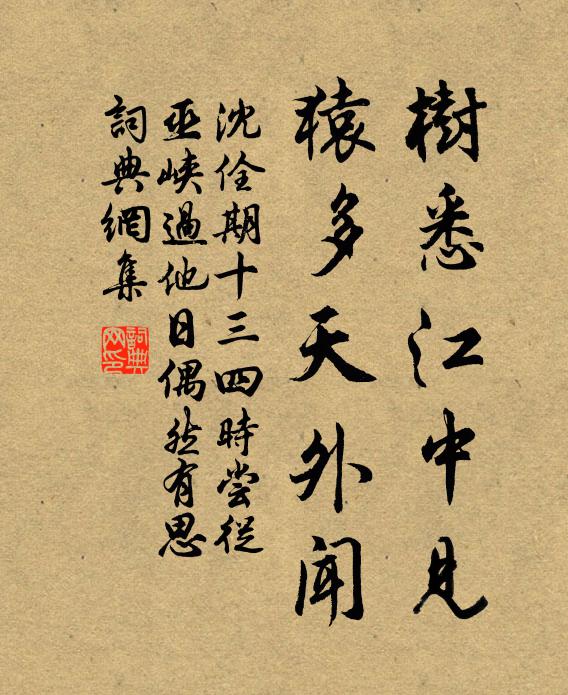 樹悉江中見
猿多天外聞
沈佺期十三四時嘗從
巫峽過他日偶然有思
詞典網集
詞典
网印